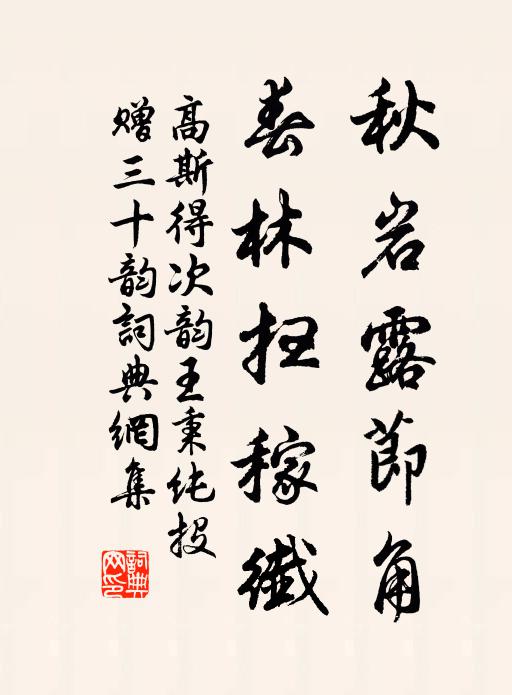 秋岩露節角
春林扫稼纖
高斯得次韵王秉纯投
赠三十韵詞典網集
詞典網印